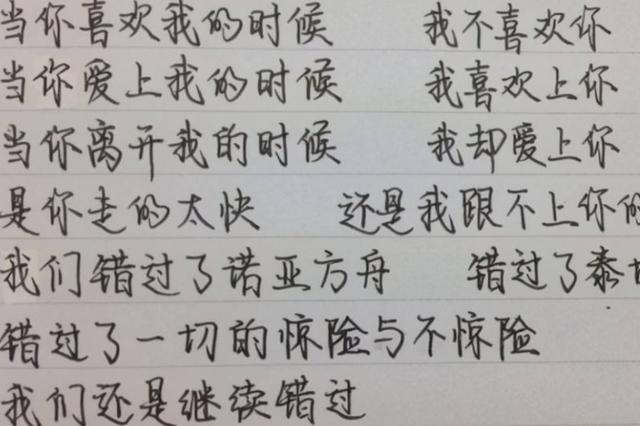 当你喜欢我的时候 我不喜欢你
当你爱上我的时候 我喜欢上你
当你离开我的时候 我却爱上你
是你走的太快 还是我跟不上你的
我们错过了诺亚方舟 错过了泰
错过了一切的惊险与不惊险
我们还是继续错过